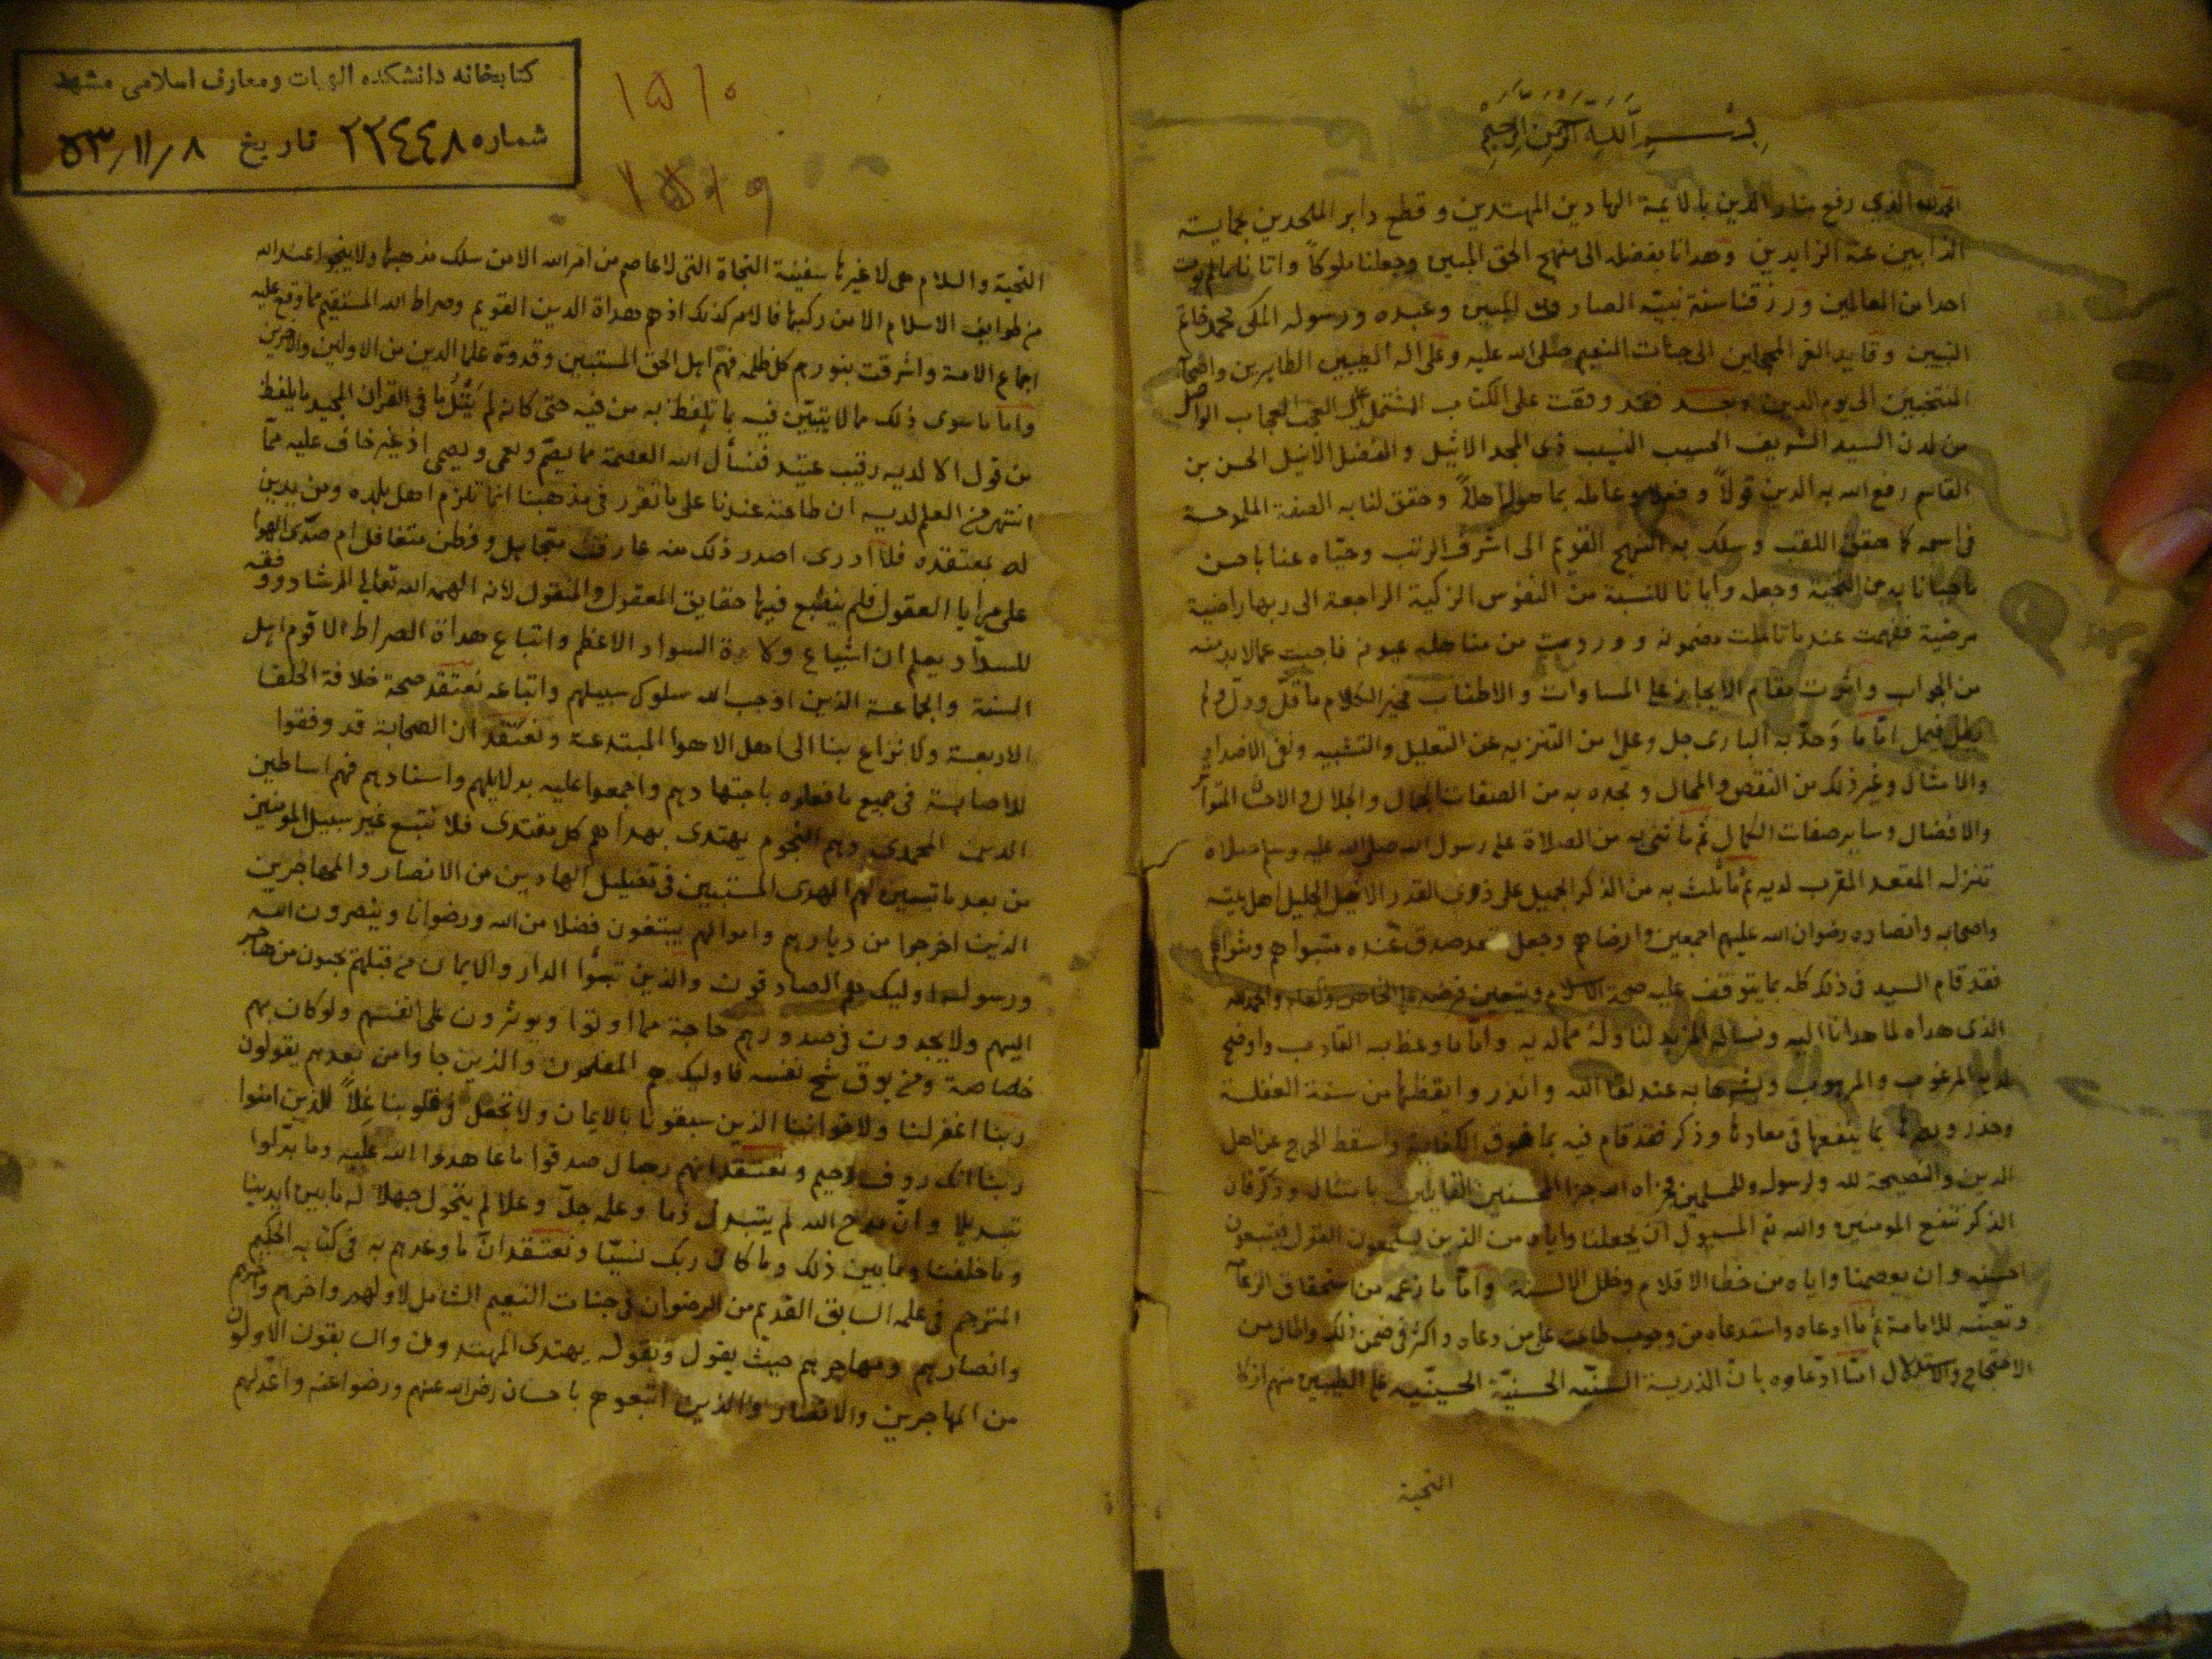 بسم الله الرحمن الرحيم
الحمد لله الذي رفع منار الدين بالايمة الهادين المهتدين و قطع دابر الملحدين بحماية
الذابين عنه الزايدين وهدانا بفضله الى منهج الحق المبين وجعلنا ملوكاً واتانا مالم يوت
احدا من العالمين ورزقنا سنة نبيه الصادق المبين وعبده ورسوله المكى محمد خاتم
النبيين وقايد الغر المحجلين الى جنات النعيم صلى الله عليه وعلى اله الطيبين الطاهرين واصحابه
المنتجبين الى يوم الدين وبعد فقد وقفت على الكتاب المشتمل على العجب العجاب الواصل
من لدن السيد الشريف الحسيب النسيب ذى المجد الاثيل والفضل الاثيل الحسن بن
القاسم رفع الله به الدين قولاً وفعلا وعامله بما هو له اهلاً وحقق لنا به الصفة الملموحة
فى اسمه كما حقق اللقب وسلك به النهج القويم الى اشرف الرتب وحياه عنا باحسن
ما حيانا به من التحية وجعله وايانا للنسبة من النفوس الزكية الراجعة الى ربها راضية
مرضية ففهمت عند ما تاملت مضمونه ووردت من مناهله عيونه فاجبت عما لا بد منه
من الجواب واثرت مقام الايجاز على المساوات والاطناب فخير الكلام ما قل ودل ولم
يطل فيمل امّا ما وحد به البارى جل وعلا من التنزيه عن التعليل والتشبيه ونفى الاضداد
والامثال وغير ذلك من النقص والمحال ومجده به من الصفات الجمال والجلال والاحسان المتواتر
والافضال وساير صفات الكمال ثم ما ثنى به من الصلاة على رسول الله صلى الله عليه وسلم صلاة
تنزله المقعد المقرب لديه ثم ما ثلث به من الذكر الجميل على ذوى القدر الاثيل الجليل اهل بيته
واصحابه وانصاره رضوان الله عليهم اجمعين وارضاهم وجعل مقعد صدق عنده متبواهم ومثواهم
فقد قام السيد فى ذلك كله بما يتوقف عليه صحة الاسلام ويتعين فرضه على الخاص والعام والحمد لله
الذى هداه لما هدانا اليه ونساله المزيد لنا وله مما لديه وامّا ما وعظ به القلوب واوضح
لديها المرغوب والمرهوب وبشرها به عند لقا الله وانذر وايقظها من سنة الغفلة
وحذر وبصرها بما ينفعها فى معادها وذكر فقد قام فيه بما هو فوق الكفاية واسقط الحرج عن اهل
الدين والنصيحة لله ولرسوله وللمسلمين فجزاه الله جزا المحسنين القايلين بامتثال وذكر فان
الذكر تنفع المومنين والله تع المسيول ان يجعلنا واياه من الذين يستمعون القول فيتبعون
احسنه وان يعصمنا واياه من خطا الاقلام وخلل الالسنة وامّا ما زعمه من استحقاق الزعامة
وتعينه للامامة ثم ما ادعاه واستدعاه من وجوب طاعته على من دعاه واكثر فى ضمن ذلك واطال من
الاحتجاج والاستدلال امّا ادّعاوه بان الذرية السنيّه الحسنيّة الحسينّيه على الطيبين منهم ازكا
التحية
كتابخانه دانشكده الهيات ومعارف اسلامى مشهد
شماره ۲۲۴۴۸ تاريخ ۵۳/۱۱/۸
۱۵۱۰
التحية والسلام هى لا غيرها سفينة النجاة التى لا عاصم من امر الله الا من سلك مذهبها ولا ينجوا عند الله
من طوايف الاسلام الا من ركبها فالامر كذلك اذ هم هداة الدين القويم وصراط الله المستقيم مما وقع عليه
اجماع الامة واشرقت بنورهم كل ظلمه فهم اهل الحق المستبين وقدوة علما الدين من الاولين والاخرين
واما ما سوى ذلك مما لا يتبيّن فيه ما تلفظ به من فيه حتى كانه لم يتل ما فى القران المجيد ما يلفظ
من قول الا لديه رقيب عتيد فنسأل الله العصمة مما يصمّ ويعمى ويصمى اذ غير خاف عليه ممّا
انتهى من العلم لديه ان طاعته عندنا على ما تقرر فى مذهبنا انما تلزم اهل بلده ومن يدين
له بمعتقده فلا ادرى اصدر ذلك منه عارف متجاهل وفطن متغافل ام صدّى الهوا
على مرايا العقول فلم ينطبع فيها حقايق المعقول والمنقول لانه الهمه الله تعالى الرشاد ووفقه
للسداد يعلم ان اشياع وكادة السواد الاعظم واتباع هداة الصراط الاقوم اهل
السنة والجماعة الذين اوجب الله سلوك سبيلهم واتباعه نعتقد صحة خلافة الخلفا
الاربعة ولا نزاع بنا الى اهل الاهوا المبتدعة ونعتقد ان الصحابة قد وفقوا
للاصابة فى جميع ما فعلوه باجتهادهم واجمعوا عليه بدلايلهم واسنادهم فهم اساطين
الدين المحمدى وهم النجوم يهتدى بهداهم كل مقتدى فلا نتبع غير سبيل المومنين
من بعد ما تبين لهم الهدى المستبين فى تضليل الهادين من الانصار والمهاجرين
الذين اخرجوا من ديارهم واموالهم يبتغون فضلا من الله ورضوانا وينصرون الله
ورسوله اوليك هم الصادقون والذين تبوأوا الدار والايمان من قبلهم يحبون من هاجر
اليهم ولا يجدون فى صدورهم حاجة مما اوتوا ويوثرون على انفسهم ولو كان بهم
خصاصة ومن يوق شح نفسه فاوليك هم المفلحون والذين جاوا من بعدهم يقولون
ربنا اغفر لنا ولاخواننا الذين سبقونا بالايمان ولا تجعل فى قلوبنا غلاً للذين امنوا
ربنا انك روف رحيم ونعتقد انهم رجال صدقوا ما عاهدوا الله عليه وما بدلوا
تبديلا وان مدح الله لم يتبدل ذما وعلمه جلّ وعلا لم يتحول جهلا له ما بين ايدينا
وما خلفنا وما بين ذلك وما كان ربك نسيّا ونعتقد انّ ما وعدهم به فى كتابه الحكيم
المترجم فى علمه السابق القديم من الرضوان فى جنات النعيم الشامل لاولهم واخرهم
وانصارهم ومهاجريهم حيث يقول وبقوله يهتدى المهتدون والسابقون الاولون
من المهاجرين والانصار والذين اتبعوهم باحسان رضى الله عنهم ورضوا عنه واعد لهم